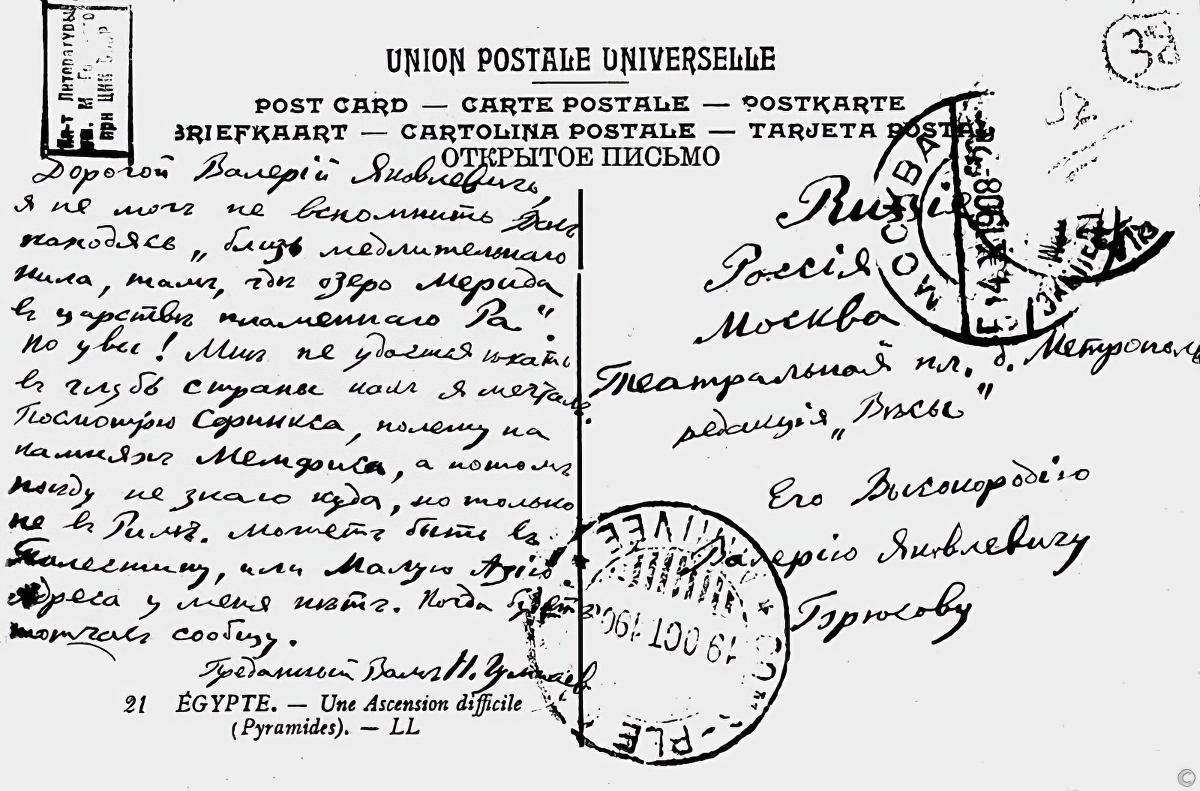 Ин-т Литературы
им. М. Горького
при ЦИК СССР
UNION POSTALE UNIVERSELLE
POST CARD — CARTE POSTALE — POSTKARTE
BRIEFKAART — CARTOLINA POSTALE — TARJETA POSTAL
ОТКРЫТОЕ ПИСЬМО
Дорогой Валерій Яковлевичъ,
я не могъ не вспомнить Васъ
находясь „близь медлительнаго
Нила, тамъ, гдѣ озеро Мерида
въ царствѣ пламеннаго Ра“.
Но увы! Мнѣ не удается ѣхать
въ глубь страны какъ я мечталъ.
Посмотрю Сфинкса, полежу на
камняхъ Мемфиса, а потомъ
поѣду не знаю куда, но только
не въ Римъ. Можетъ быть въ
Палестину, или Малую Азію.
Адреса у меня нѣтъ. Когда будетъ
тотчасъ сообщу.
Преданный Вамъ Н. Гумилевъ
21 ÉGYPTE. — Une Ascension difficile
(Pyramides). — LL
Russie
Россія
Москва
Театральная пл. д. Метрополь
редакція „Вѣсы“
Его Высокородію
Валерію Яковлевичу
Брюсову
МОСКВА
1908
19 OCT 190